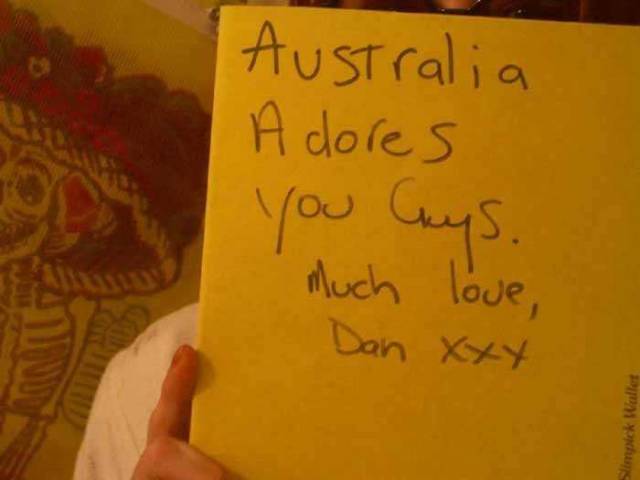 Australia
Adores
You Guys.
Much love,
Dan xxx
Slimpick Wallet